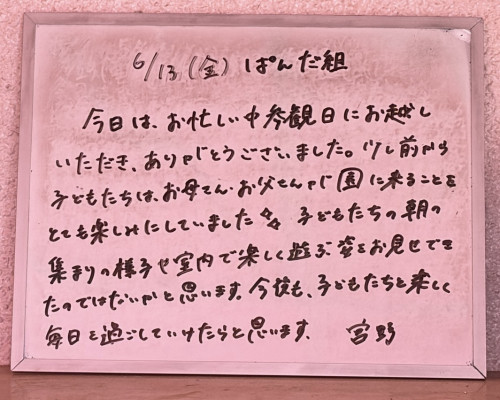 6/13(金) ぱんだ組
今日は、お忙しい中参観日にお越し
いただき、ありがとうございました。少し前から
子どもたちは、お母さん・お父さんが園に来ることを
とても楽しみにしていました 子どもたちの朝の
集まりの様子や室内で楽しく遊ぶ姿をお見せでき
たのではないかと思います。今後も、子どもたちと楽しく
毎日を過ごしていけたらと思います。 宮野